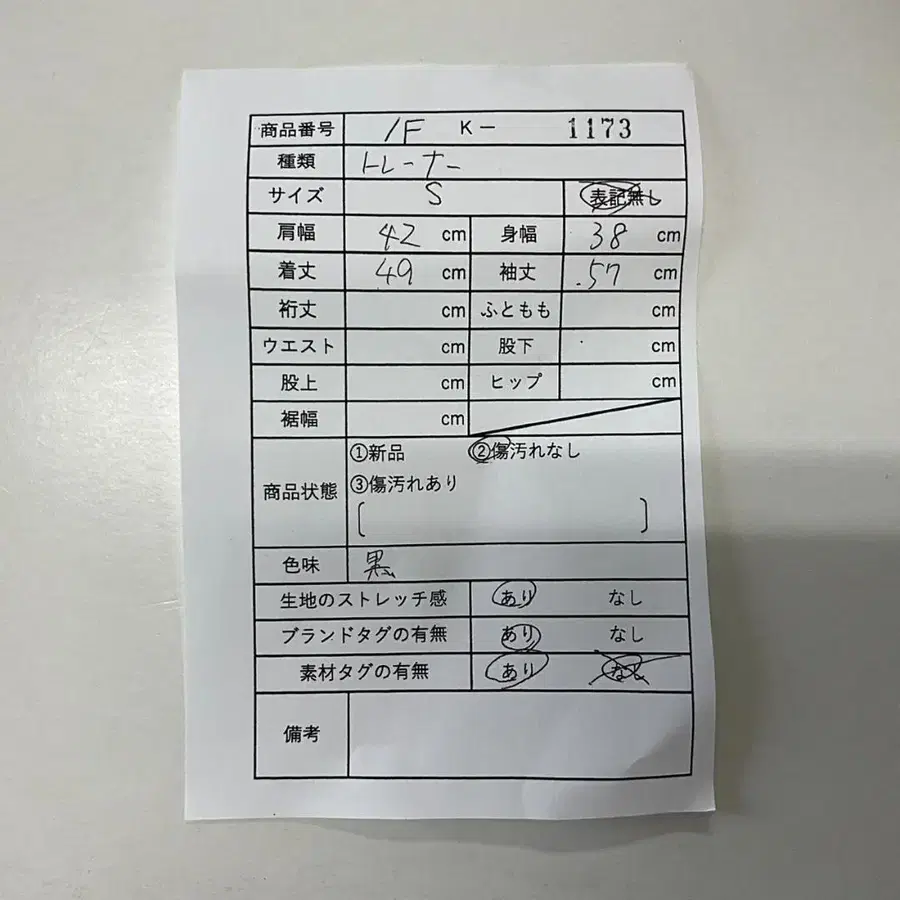 商品番号 1F K- 1173
種類 トレーナー
サイズ S 表記無し
肩幅 42 cm 身幅 38 cm
着丈 49 cm 袖丈 57 cm
裄丈 cm ふともも cm
ウエスト cm 股下 cm
股上 cm ヒップ cm
裾幅 cm
商品状態 ①新品 ②傷汚れなし
③傷汚れあり
[ ]
色味 黒
生地のストレッチ感 あり なし
ブランドタグの有無 あり なし
素材タグの有無 あり なし
備考